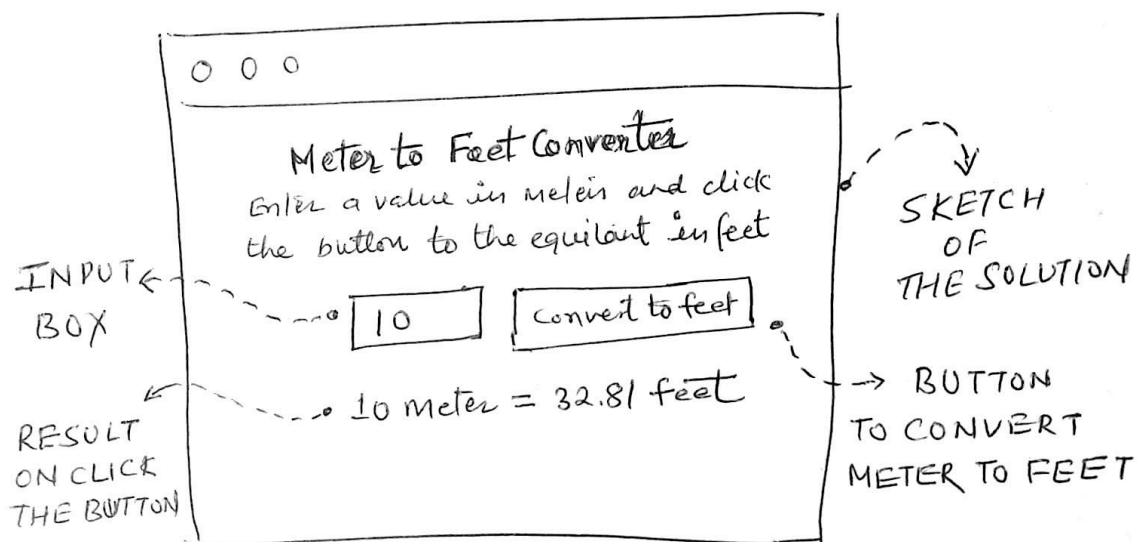 Meter to Feet Converter
Enter a value in meters and click
the button to the equilant in feet
INPUT
BOX
10
Convert to feet
10 meter = 32.81 feet
RESULT
ON CLICK
THE BUTTON
SKETCH
OF
THE SOLUTION
BUTTON
TO CONVERT
METER TO FEET